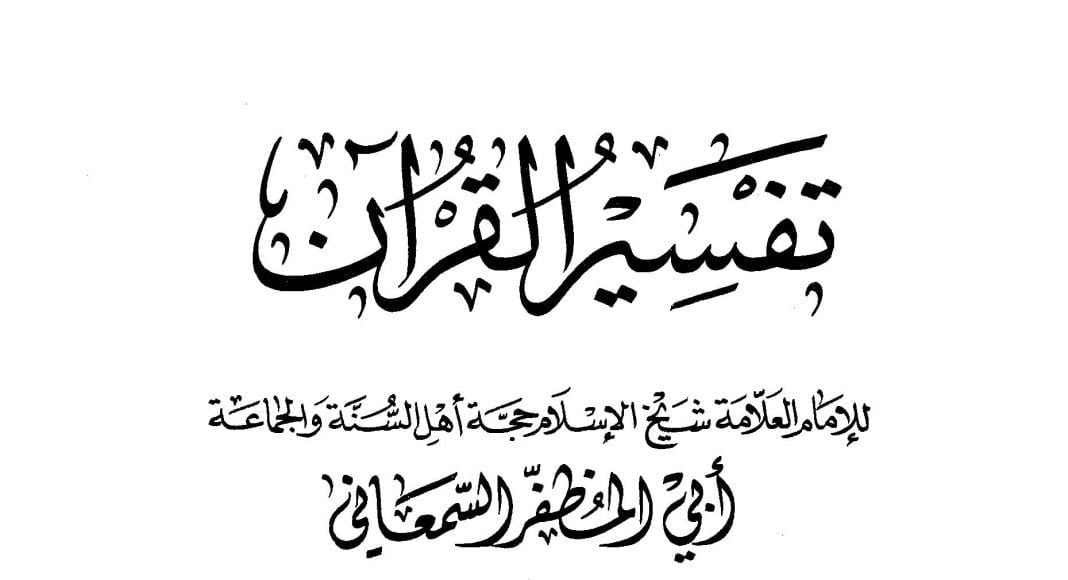 تفسير القرآن
للإمام العلامة شيخ الإسلام حجة أهل السنة والجماعة
أبي المظفر السمعاني